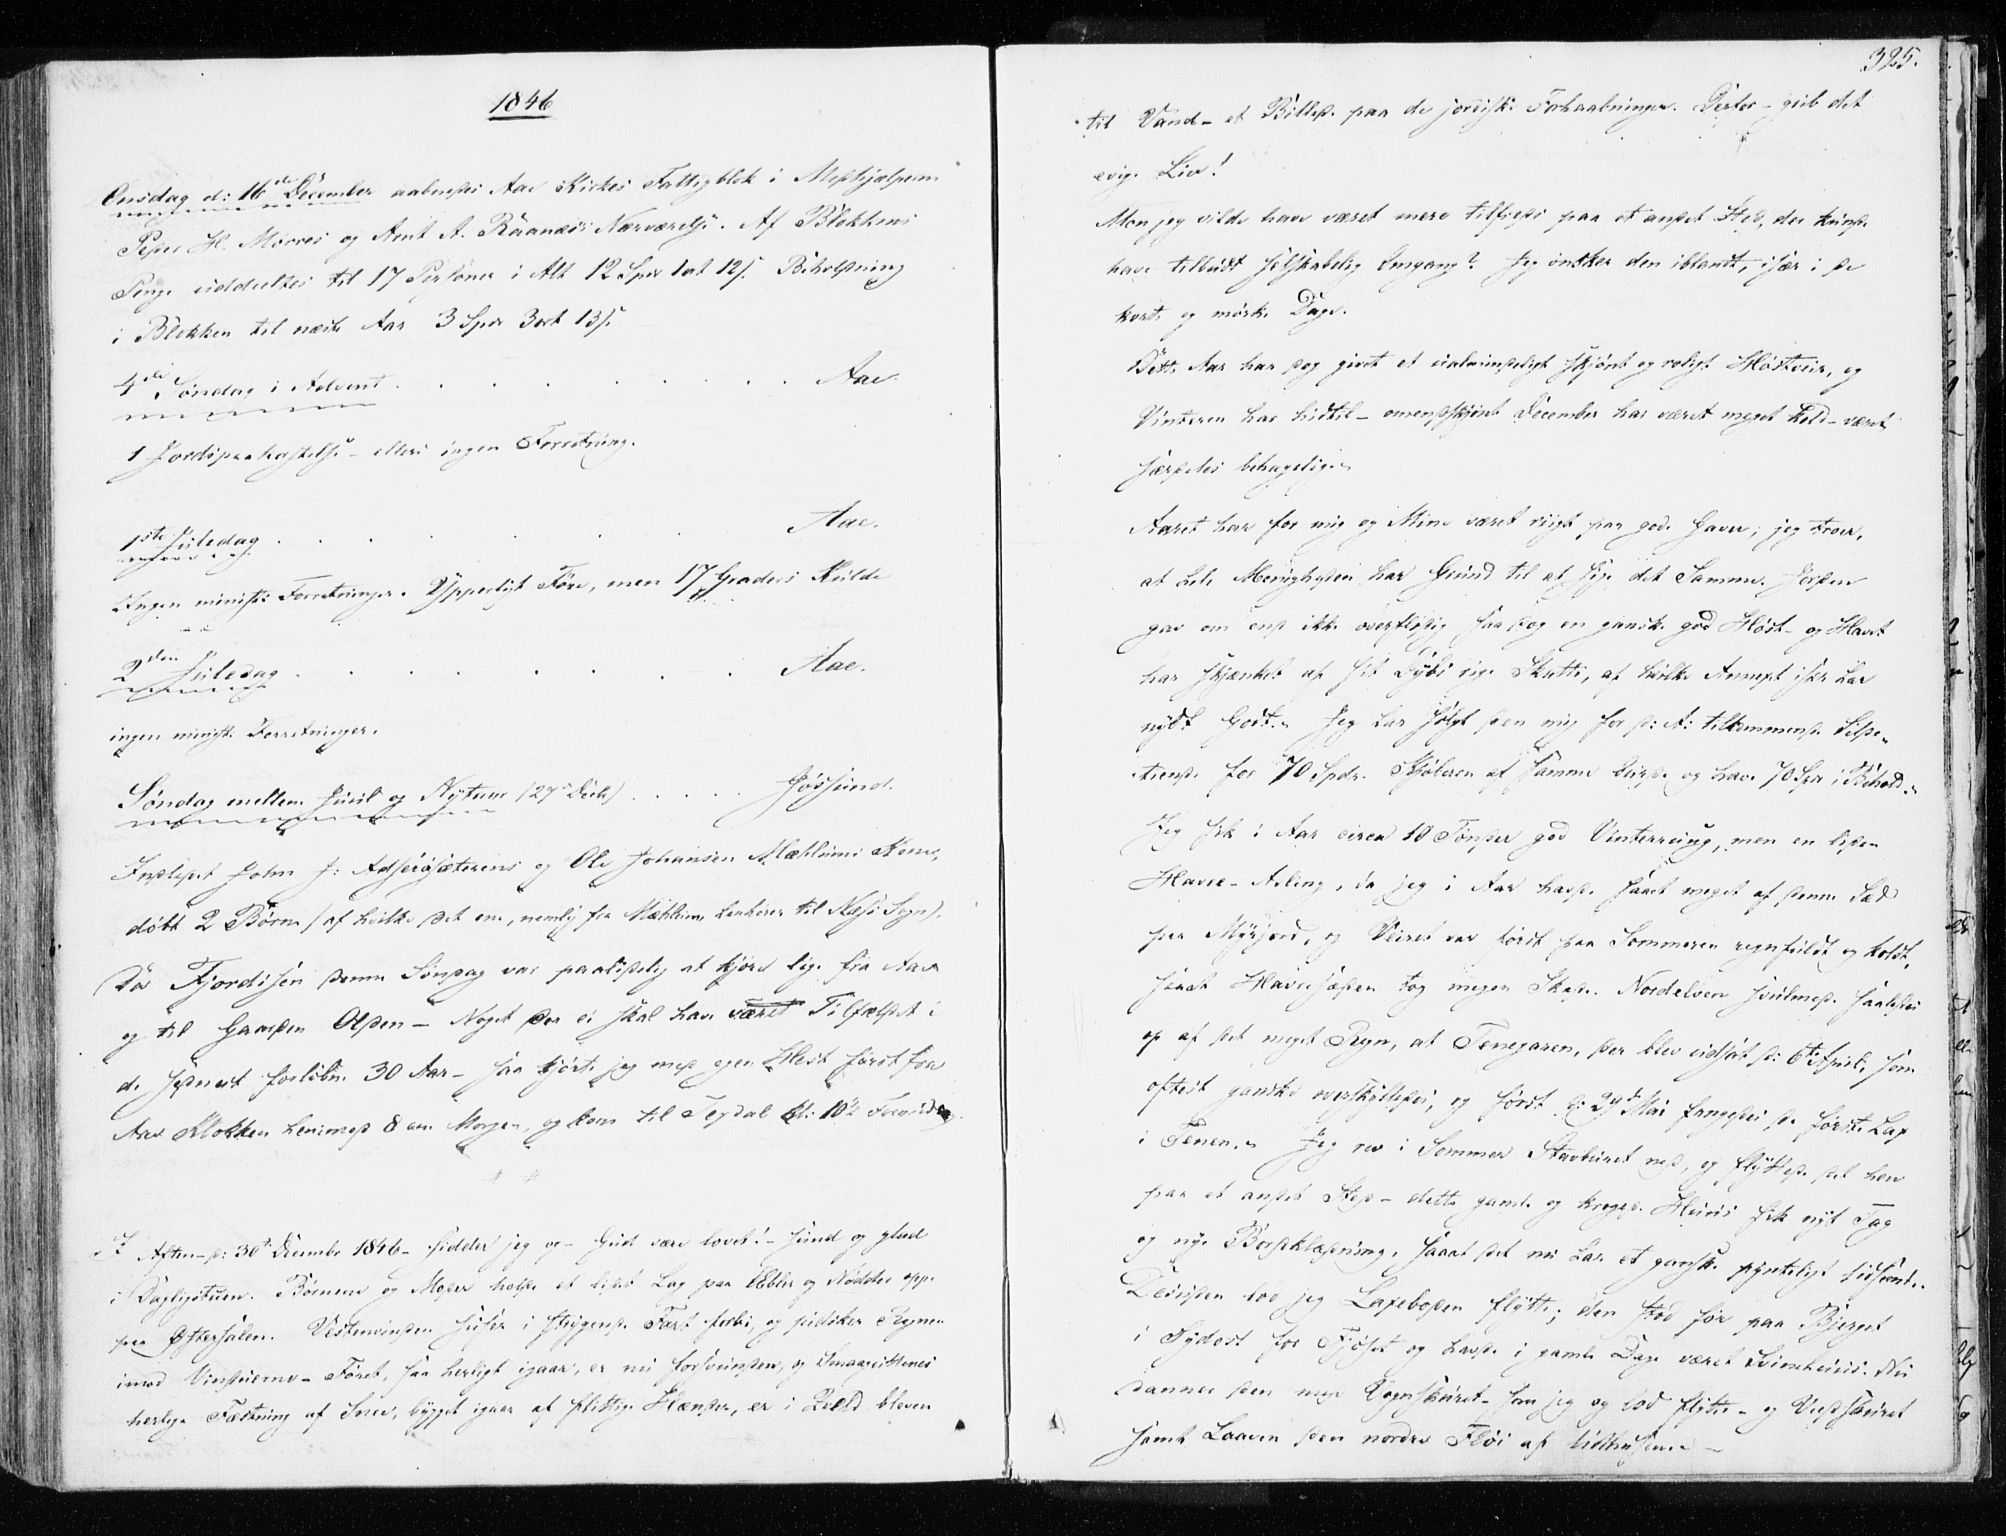 1846
Onsdag d: 16de December aabnedes Aae Kirkes Fattigblok i Medhjælpern
Peder H. Morres og Arnt A. Raanæs's Nærværelse. Af Blokkens
Penge uddeeltes til 17 Personer i Alt 12 Spd 1 ort 12 s. Beholdning
i Blokken til næste Aar 3 Spd 3 ort 13 s.
4de Søndag i Advent . . . . . . . . . . Aae.
1 Jordspaakastelse - ellers ingen Forretning.
1ste Juledag . . . . . . . Aae.
Ingen minist: Forretninger. Ypperligt Føre, men 17 Graders Kulde
2den Juledag . . . . . . . . Aae.
ingen minist: Forretninger.
Søndag mellem Juul og Nytaar (27de Decb) . . . . . Jøssund.
Indledet John J: og Ole Johansen Mæhlums Kone,
døbt 2 Børn (af hvilke det ene, nemlig fra Mæhlum henhører til Næss Sogn).
Da Fjordisen denne Søndag var paalidelig at kjøre lige fra Aae
og til Odden - Noget der ei skal have været Tilfældet i
de sidst forløbne 30 Aar - saa kjørte jeg med egen Hest først fra
Aae Klokken henimod 8 om Morgen, og kom til Teksdal Kl: 10½ Formiddag.
I Aften - d: 30te December 1846 - sidder jeg og - Gud være lovet! - sund og glad
i Dagligstuen. Børnene og Moder holde et lidet Lag paa Æbler og Nødder oppe
paa Østersalen. Vestenvinden suser i flygende Fart forbi, og pidsker Regnen
imod Vinduerne - Føret, saa herligt igaar, er nu forsvunden, og Smaagutternes
herlige Fæstning af Snee, bygget igaar af flittige Hænder, er i Qveld bleven
325.
til Vand - et Billede paa de jordiske Forhaabninger. Derfor - grib det
evige Liv!
Mon jeg vilde have været mere tilfreds paa et andet Sted, der kunde
have tilbudt selskabelig Omgang? Jeg ønsker den iblandt, især i de
korte og mørke Dage.
Dette Aar har dog givet et ualmindeligt skjønt og roligt Høstveir, og
Vinteren har hidtil - omendskjønt December har været meget kold - været
særdeles behagelig.
Aaret har for mig og Mine været riigt paa gode Gaver; jeg troer,
at hele Menigheden har Grund til at sige det Samme. Jorden
gav om end ikke overflødig saa dog en ganske god Høst - og Havet
har skjænket af sit Dybs rige Skatte, af hvilke Annexet især har
nydt Godt. Jeg har solgt den mig for d: A: tilkommende
tiende for 70 Spdr. af samme og have 70 Spd i Behold.
Jeg fik i Aar circa 10 Tønder god Vinterrug, men en liden
Havre-Avling, da jeg i Aar havde saaet meget af denne Sæd
paa Myrjord, og Veiret var først paa Sommeren regnfuldt og koldt,
saaat Havresæden tog megen Skade. Nordelven svulmede saaledes
op af det meget Regn, at Tenegaren, der blev udsat d: 6te April, som
oftest ganske overskylledes, og først d: 29de Mai fangedes de første Lax
i Tenen. Jeg rev i Sommer Stavburet ned, og flyttede det hen
paa et andet Sted - dette gamle og krogede Huus fik nyt Tag
og nye Bordklædning, saaat det nu har et ganske pynteligt Udseende.
Desuden lod jeg Laxeboden flytte; den stod før paa Bjerget
i Sydost for Fjøset og havde i gamle Dage været Sviinehuus. Nu
danner den med Vognskuret - som jeg og lod flytte - og Vedskuret
samt Laaven den nordre Fløi af Udhusene -